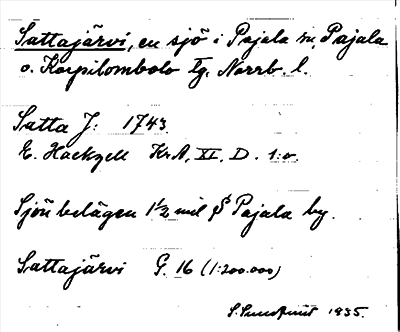 Sattajärvi, en sjö i Pajala sn, Pajala
o. Korpilombolo Tg. Norrb. l.
Satta J: 1743.
E. Hackzell Kr.A, XI, D. 1:o.
Sjön belägen 1½ mil S Pajala by.
Sattajärvi G. 16 (1:200.000)
1935.